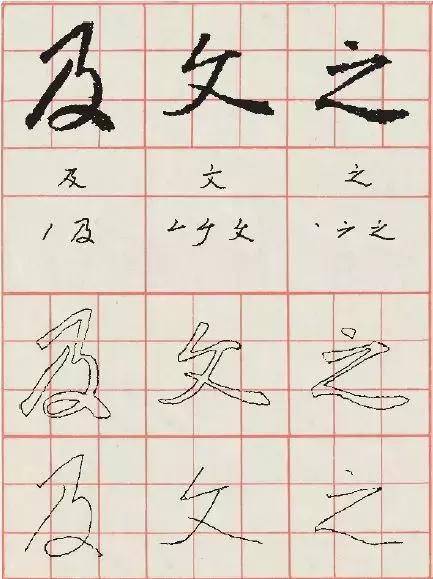 及 文 之
及 文 之
及 文 之
及 文 之
及 文 之